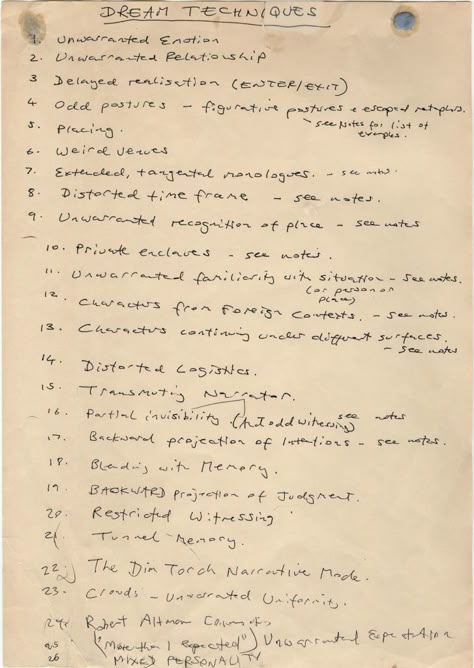 DREAM TECHNIQUES
1. Unwarranted Emotion
2. Unwarranted Relationship
3 Delayed realisation (ENTER/EXIT)
4 Odd postures - figurative postures & escaped metaphors.
see Notes for list of
examples.
5. Placing.
6. Weird Venues
7. Extended, tangental monologues. - see notes.
8. Distorted time frame - see notes.
9. Unwarranted recognition of place - see notes
10. Private enclaves - see notes.
11. Unwarranted familiarity with situation - see notes.
(or person or
place)
12. Characters from Foreign Contexts. - see notes.
13. Characters continuing under different surfaces.
- see notes
14. Distorted Logistics.
15. Transmuting Narrator.
16. Partial invisibility (And odd witnessing) see notes
17. Backward projection of Intentions - see notes.
18. Blending with Memory.
19. BACKWARD projection of Judgment.
20. Restricted Witnessing
21. Tunnel Memory.
22. The Dim Torch Narrative Mode.
23. Crowds - Unwarranted Uniformity.
24. Robert Altman
25 ("More than 1 Repeated") Unwarranted Expectation
26 MIXED PERSONALITY